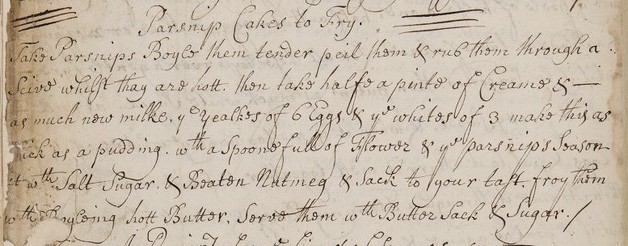 Parsnip Cakes to Fry.
Take Parsnips Boyle them tender peil them & rub them through a
Seive whilst thay are hott. then take halfe a pinte of Creame &
as much new milke, ye yealkes of 6 Eggs & ye whites of 3 make this as
thick as a pudding. wth a Spoonefull of Flower & ye parsnips Season
it wth Salt Sugar, & Beaten Nutmeg & Sack to your tast. froy them
wth boyleing hott Butter. Serve them wth Butter Sack & Sugar. /